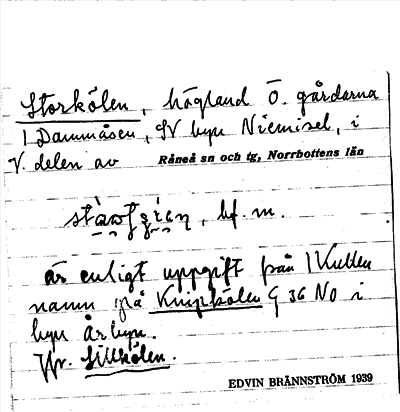 Storkölen, högland Ö. gårdarna
i Dammåsen, SV byn Niemisel, i
V. delen av Råneå sn och tg, Norrbottens län
bf. m.
är enligt uppgift från 1 Kullen
namn på Knipkölen G 36 NO i
byn Årbyn.
Jfr. Lillkölen.
EDVIN BRÄNNSTRÖM 1939